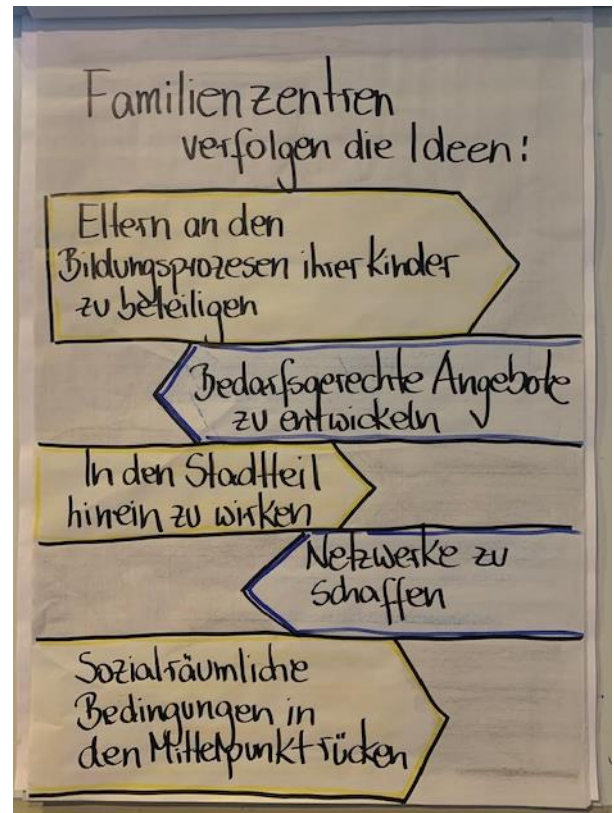 Familienzentren
verfolgen die Ideen:
Eltern an den
Bildungsprozesen ihrer Kinder
zu beteiligen
Bedarfsgerechte Angebote
zu entwickeln
In den Stadtteil
hinein zu wirken
Netzwerke zu
schaffen
Sozialräumliche
Bedingungen in
den Mittelpunkt rücken